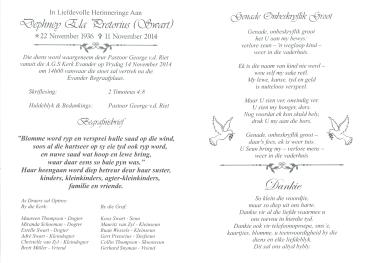 In Liefdevolle Herinnering Aan
Dephney Ela Pretorius (Swart)
22 November 1936 11 November 2014
Die diens word waargeneem deur Pastoor George v.d. Riet
vanuit die A.G.S Kerk Evander op Vrydag 14 November 2014
om 14h00 vanwaar die stoet sal vertrek na die
Evander Begraafplaas.
Skriflesing: 2 Timoteus 4:8
Huldeblyk & Bedankings: Pastoor George v.d. Riet
Begrafnisbrief
"Blomme word ryp en versprei hulle saad op die wind,
soos al die hartseer op sy eie tyd ook ryp word,
en nuwe saad vol hoop en liewe bring,
waar daar eens so baie pyn was."
Haar heengaan word diep betreur deur haar suster,
kinders, kleinkinders, agter-kleinkinders,
familie en vriende.
As Draers sal Optree:
By die Kerk By die Graf
Maureen Thompson - Dogter
Miranda - Dogter
Estelle Swart - Dogter
Adré Swart - Kleindogter
- Kleindogter
Brett Müller - Vriend
Koos Swart - Seun
Maurits van Zyl - Kleinseun
Ruan Wessels - Kleinseun
Gert Pretorius - Stiefseun
Collin Thompson - Skoonseun
Gerhard Snyman - Vriend
Genade Onbeskryflik Groot
Genade, onbeskryflik groot
het U aan my bewys,
verlore seun – 'n wegloop kind –
weer in die vaderhuis.
Ek is die naam van kind nie werd –
wou self my sake reël.
My lewe, kanse, tyd en geld
is nutteloos verspeel.
Maar U sien ver, oneindig ver
U sien my honger, dors.
Nog voordat ek kon skuld bely,
druk U my aan die bors.
Genade, onbeskryflik groot –
daar's fees, ek is weer tuis.
U Seun bring my – verlore mens –
weer in die vaderhuis.
Dankie
So klein die woordjie,
maar so diep uit ons harte.
Dankie vir al die liefde waarmee u
ons tuenvou in hierdie tyd.
Dankie ook vir telefoonoproepe, sms'e,
kaartjies, blomme, u teenwoordigheid by die
diens en elke liefdeblyk.
Dit sal ons altyd bybly.